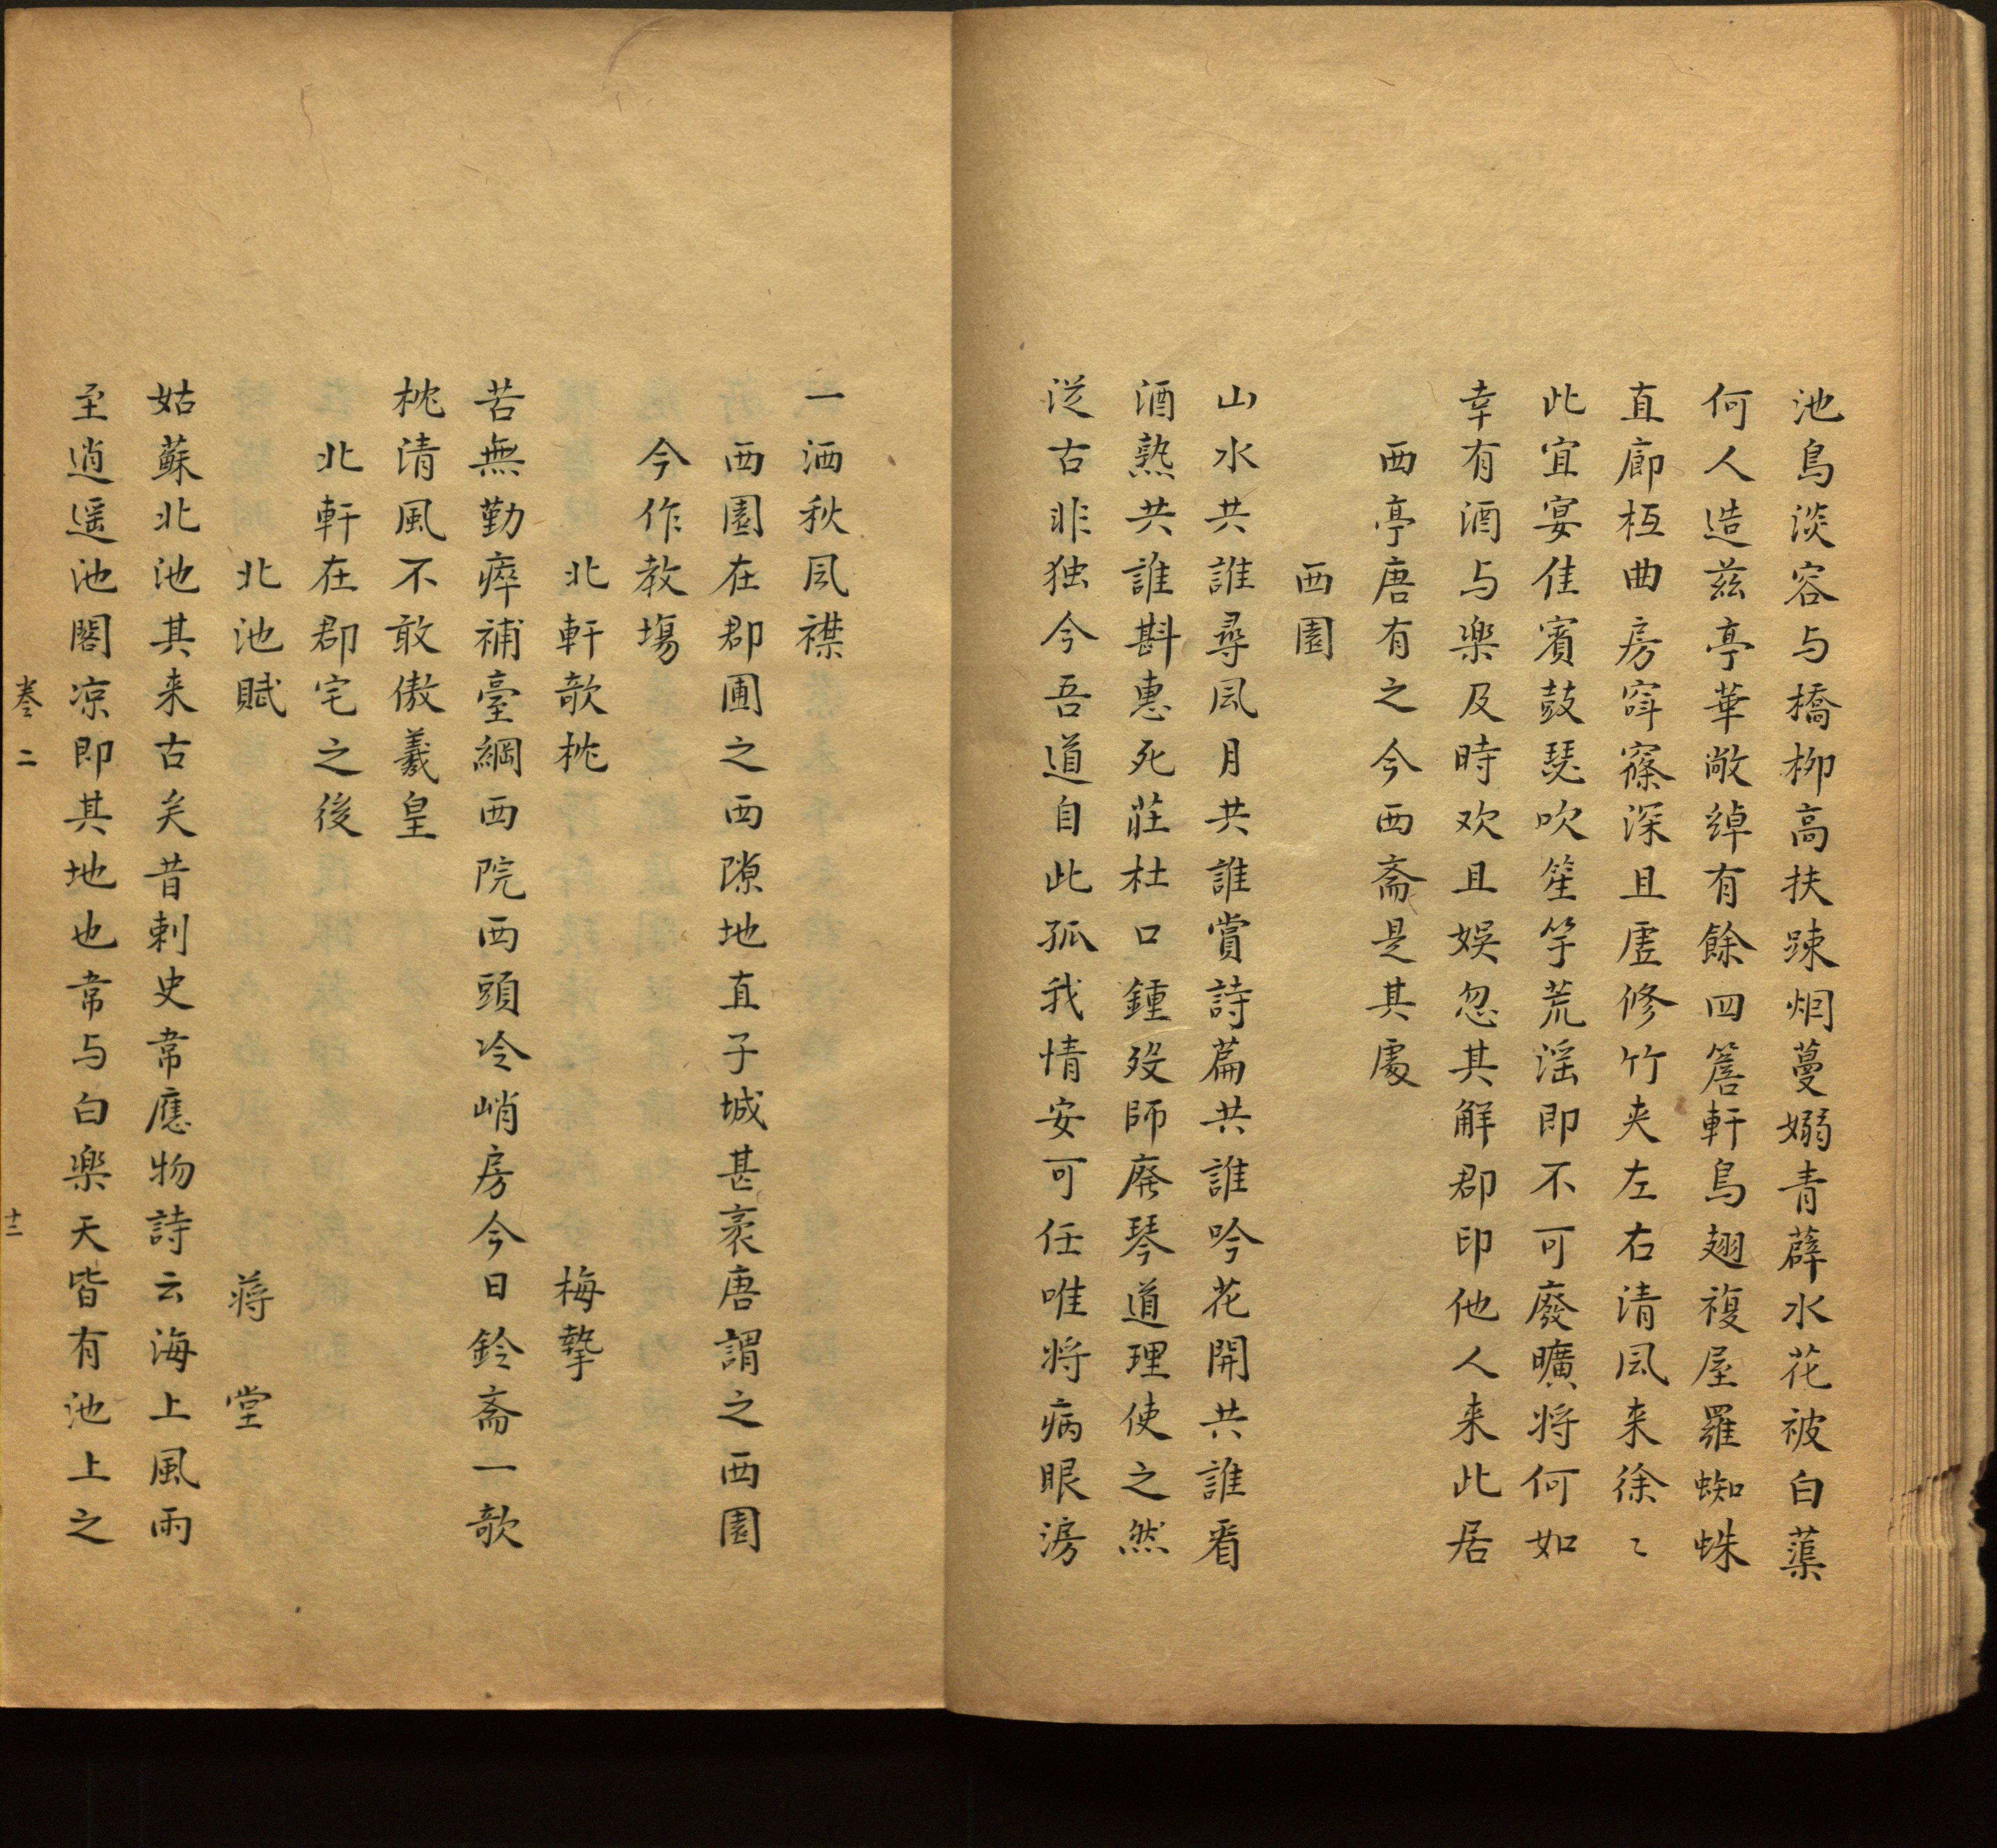 池鳥淡容与橋柳高扶踈烟蔓嫋青薜水花被白蕖
何人造兹亭華敞绰有餘四簷軒鳥翅複屋羅蜘蛛
直廊柩曲房窱深且虚修竹夾左右清凮来徐〻
此宜宴佳賓鼓瑟吹笙竽荒滛即不可廢曠将何如
幸有酒与楽及時欢且娱忽其解郡印他人来此居
西亭唐有之今西斋是其處
西園
山水共誰尋凮月共誰賞詩篇共誰吟花開共誰看
酒熟共誰斟惠死莊杜口鍾歿師廃琴道理使之然
從古非独今吾道自此孤我情安可任唯将病眼滂
一洒秋凮襟
西園在郡圃之西隙地直子城甚袤唐謂之西園
今作教塲
北軒歌枕 梅摯
苦無勤瘁補臺綱西院西頭冷峭房今日鈴斋一歌
枕清風不敢傲羲皇
北軒在郡宅之後
北池賦 蒋堂
姑蘇北池其来古矣昔刺史常應物詩云海上風雨
至逍遥池閣凉即其地也常与白楽天皆有池上之
卷二 十二